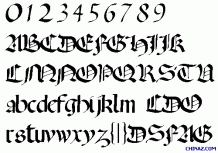 0123456789
ABCDEFGHIJK
LMNOPQRSTU
abcdefghijklm CDO
nrstuvwxyz{|}DSFAG
CHINAZ.COM